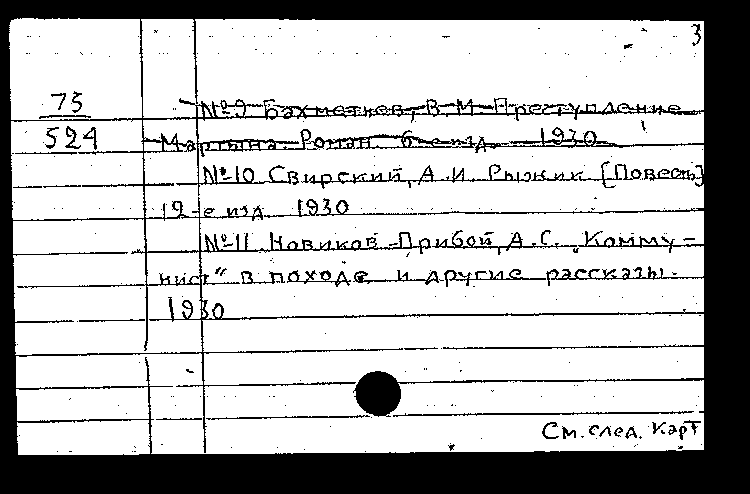 3
75
524
№9 Бахметьев, В.М. Преступление
Мартына. Роман. 6-е изд. 1930
№10 Свирский, А.И. Рыжик [Повесть]
12-е изд. 1930
№11 Новиков-Прибой, А.С. „Комму-
нист“ в походе и другие рассказы.
1930
См. след. карт